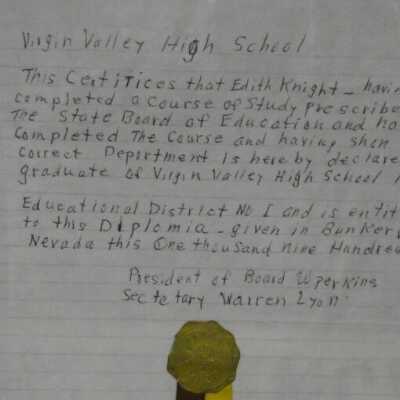 Virgin Valley High School
This Certitices that Edith Knight - havin
completed a Course of Study prescribe
The State Board of Education and ha
Completed The Course and having shen
correct Deportment is here by declare
graduate of Virgin Valley High School
Educational District No I and is entit
to this Diplomia - given in Bunker
Nevada this One thousand nine Hundre
President of Board W perkins
Sectetary Warren Lyon